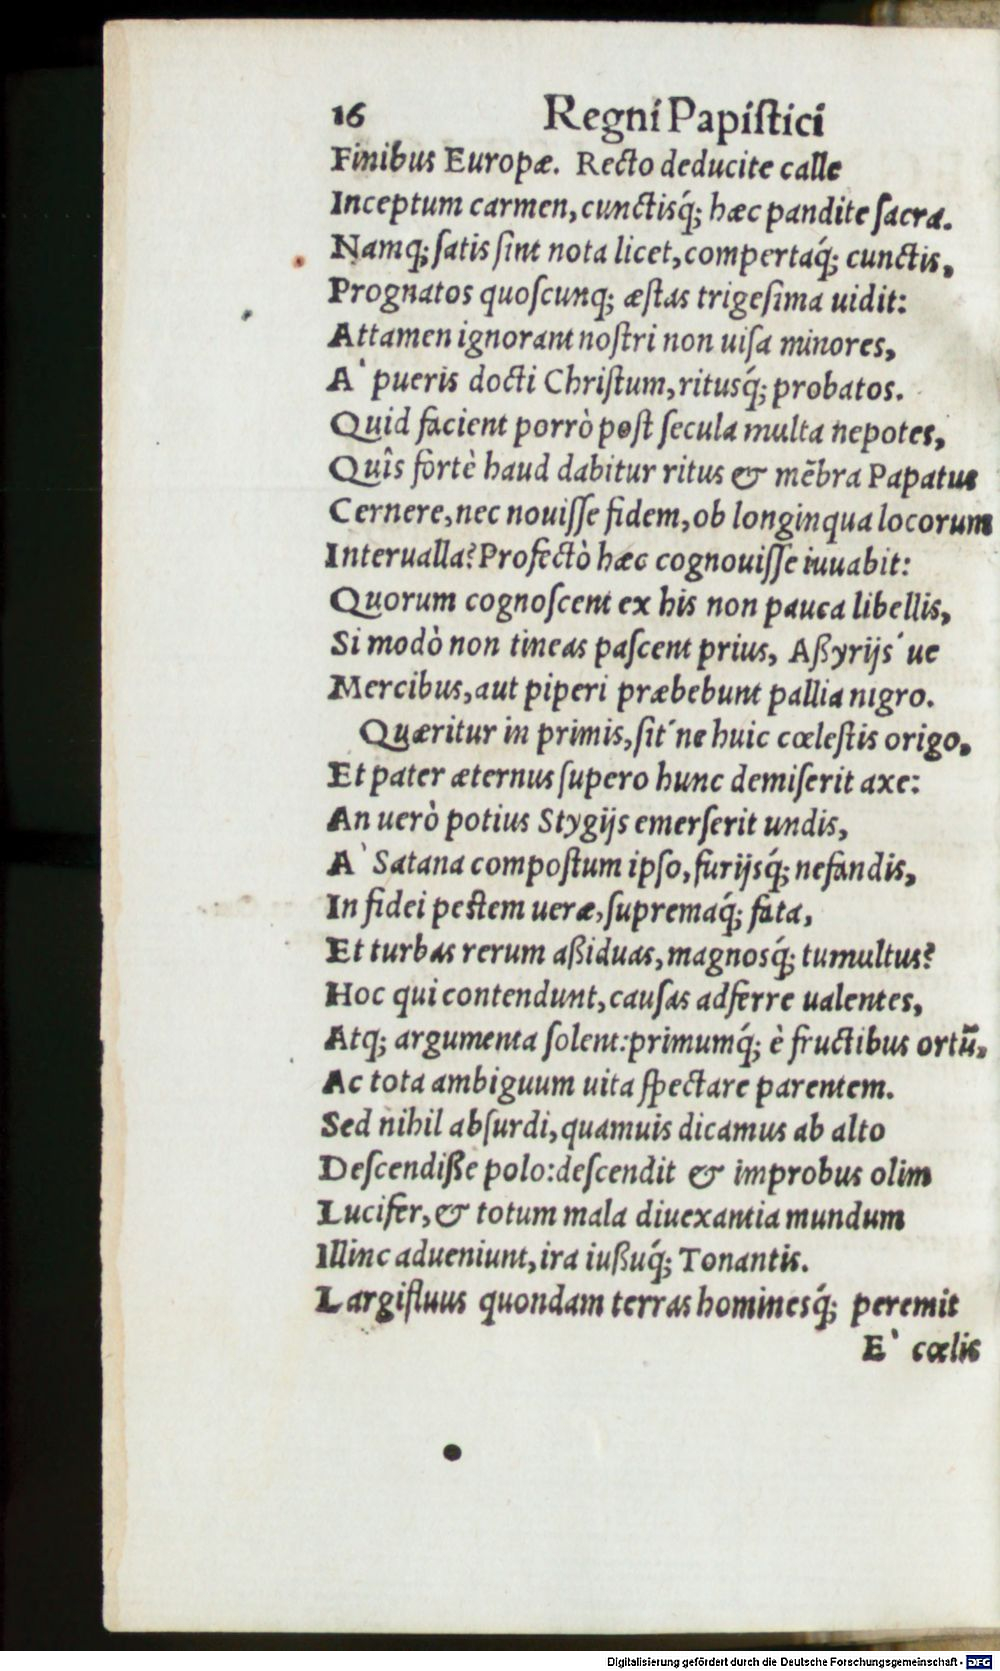 16 Regni Papiſtici
Finibus Europæ. Recto deducite calle
Inceptum carmen, cunctisq́; hæc pandite ſacra.
Namq; ſatis ſint nota licet, compertaq́; cunctis,
Prognatos quoſcunq; æſtas trigeſima uidit:
Attamen ignorant noſtri non uiſa minores,
A` pueris docti Chriſtum, ritusq́; probatos.
Quid facient porrò poſt ſecula multa nepotes,
Quîs fortè haud dabitur ritus & mẽbra Papatus
Cernere, nec nouiſſe fidem, ob longinqua locorum
Interualla? Profectò hæc cognouiſſe iuuabit:
Quorum cognoſcent ex his non pauca libellis,
Si modò non tineas paſcent prius, Aßyrijs´ue
Mercibus, aut piperi præbebunt pallia nigro.
Quæritur in primis, ſit´ne huic cœleſtis origo,
Et pater æternus ſupero hunc demiſerit axe:
An uerò potius Stygijs emerſerit undis,
A` Satana compoſtum ipſo, furijsq́; nefandis,
In fidei peſtem ueræ, ſupremaq́; fata,
Et turbas rerum aßiduas, magnosq́; tumultus?
Hoc qui contendunt, cauſas adferre ualentes,
Atq; argumenta ſolent: primumq́; è fructibus ortũ,
Ac tota ambiguum uita ſpectare parentem.
Sed nihil abſurdi, quamuis dicamus ab alto
Deſcendiſſe polo: deſcendit & improbus olim
Lucifer, & totum mala diuexantia mundum
Illinc adueniunt, ira iußuq́; Tonantis.
Largifluus quondam terras hominesq́; peremit
E` cœlis
Digitalisierung gefördert durch die Deutsche Forschungsgemeinschaft - DFG